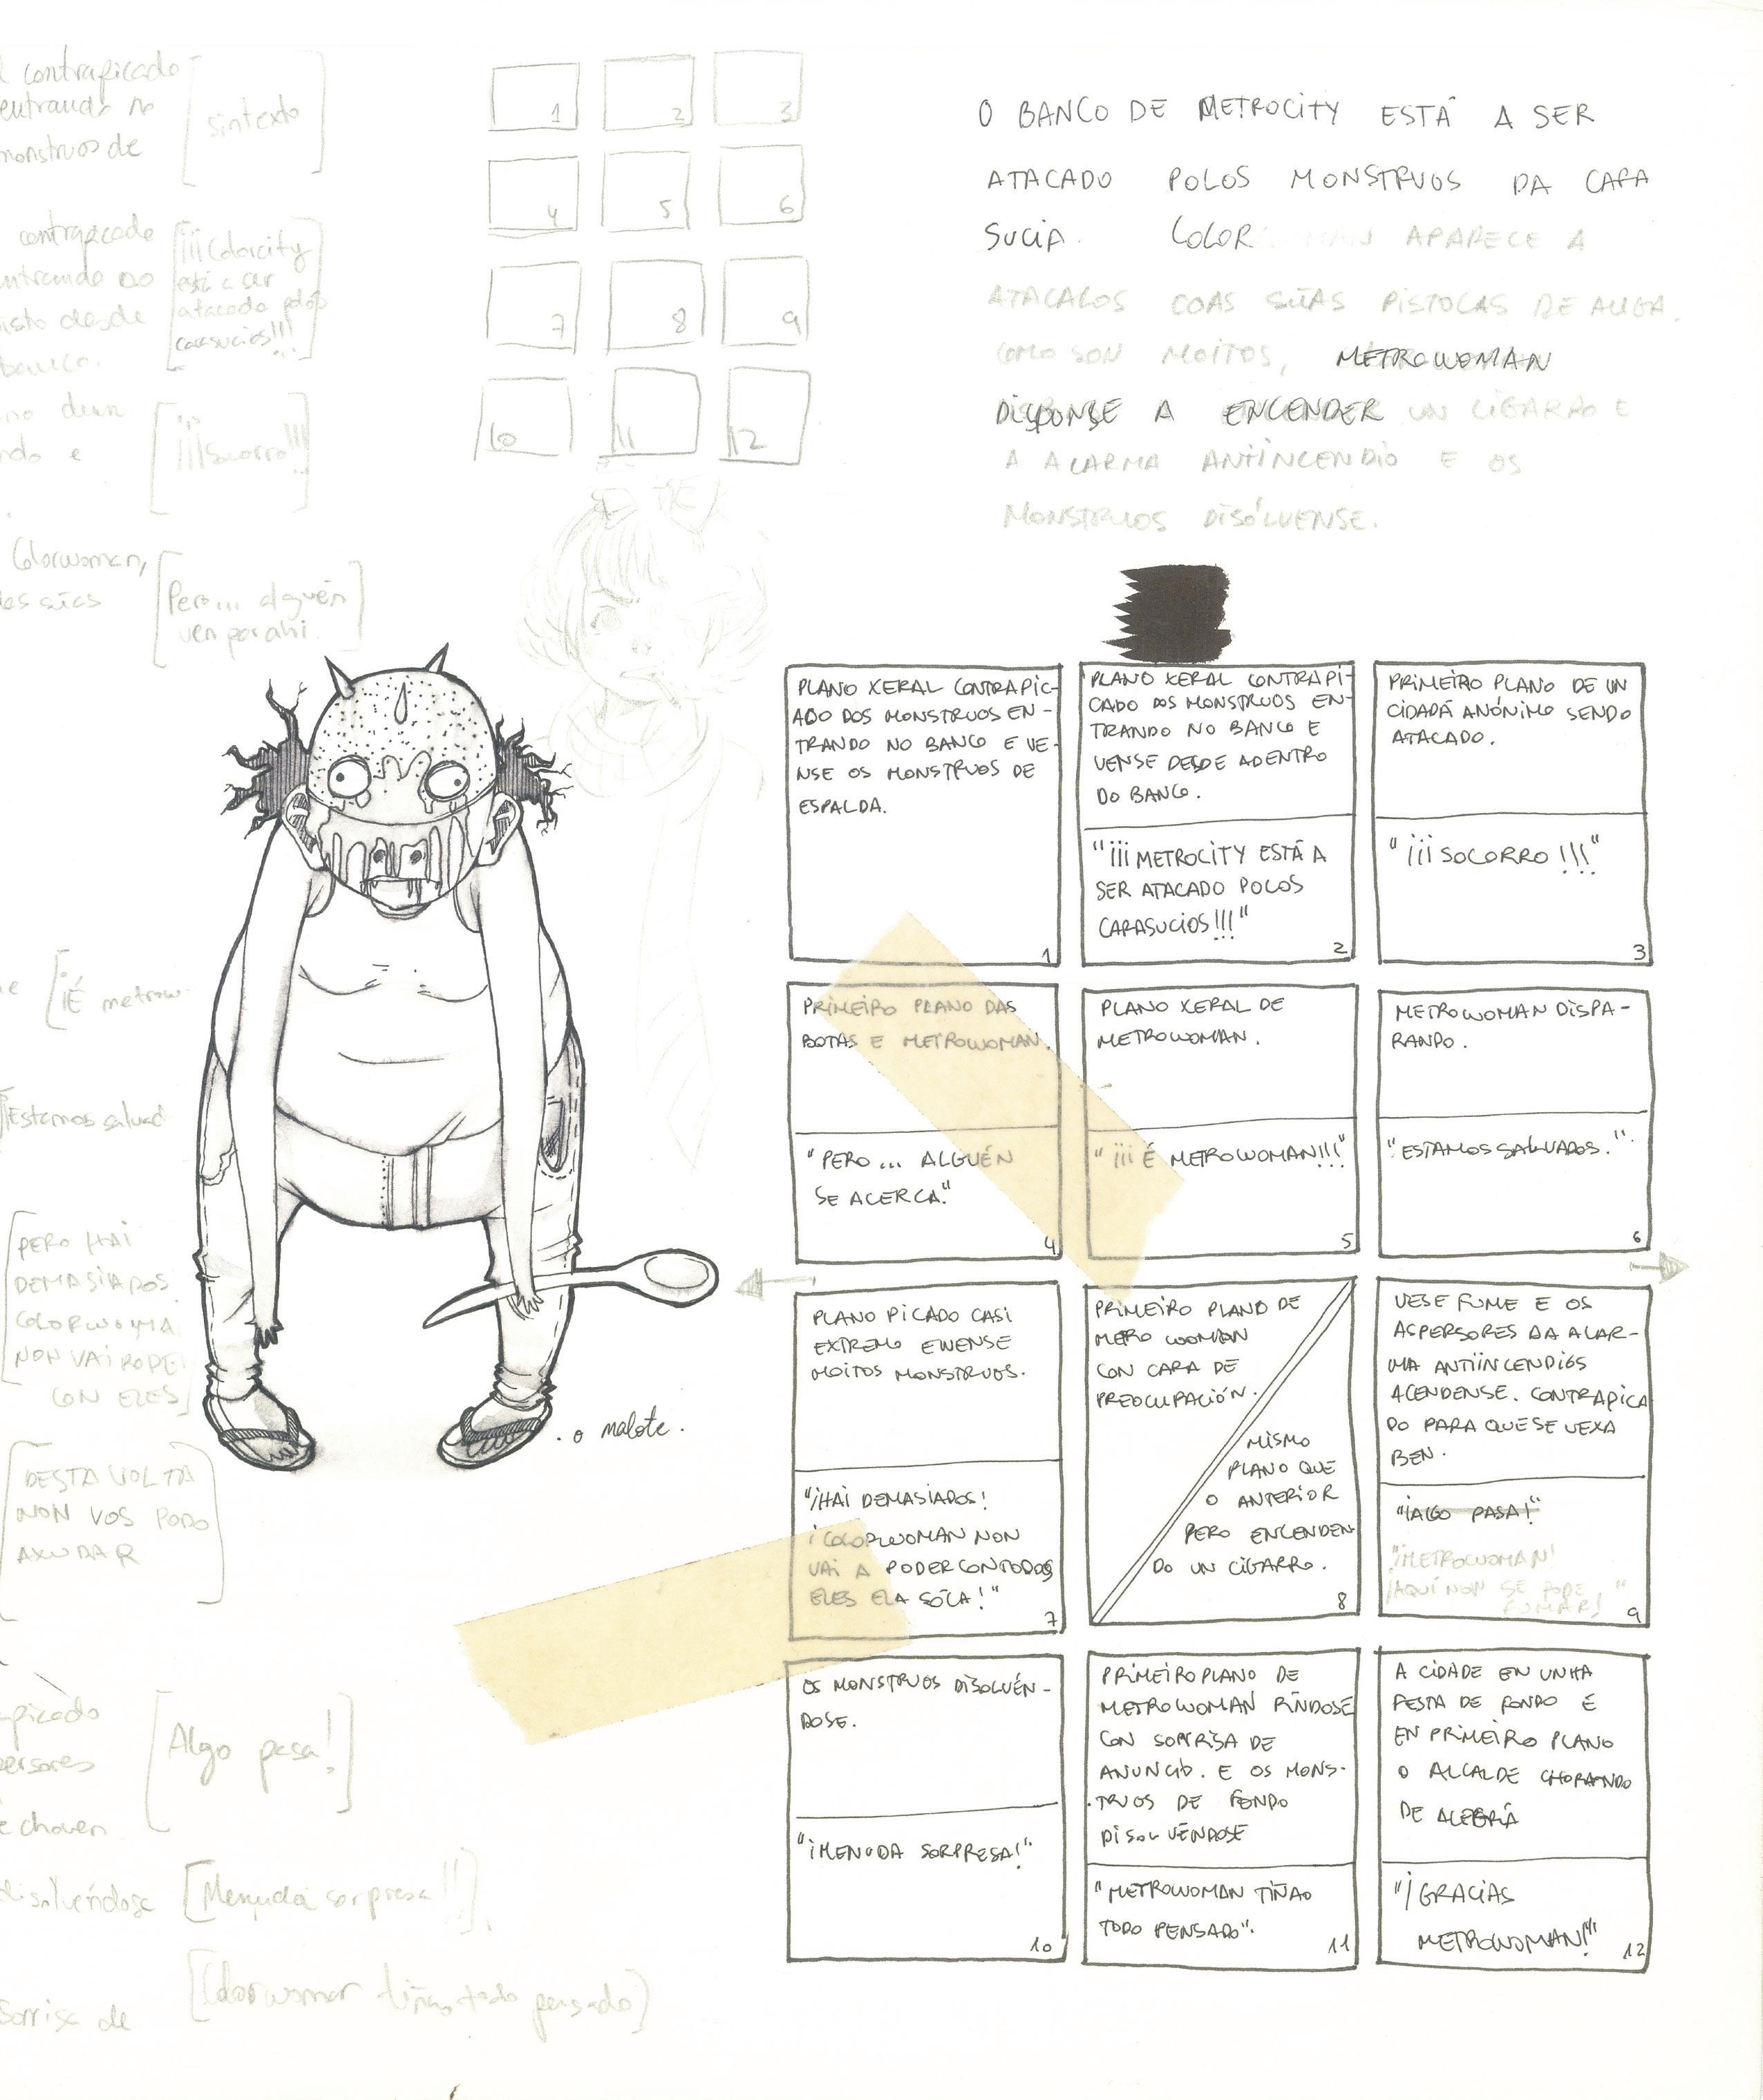 contrapicado
entrando no
monstruos de
sintexto
contrapicado
entrando no
visto desde
banco.
¡¡¡Colorcity
está a ser
atacada polos
carasucios!!!
¡¡¡Socorro!!!
Colorwoman,
das súas
Pero... alguén
ven por ahi.
¡É metrow
Estamos salvad
PERO HAI
DEMASIADOS
COLORWOMA
NON VAI PODE
CON ELES
DESTA VOLTA
NON VOS PODO
AXUDAR
apicado
persores
e choven
Algo pasa!
disolvéndose
Menuda sorpresa!!
Colorwoman tiñao todo pensado
Sorrisa de
1
2
3
4
5
6
7
8
9
10
11
12
O BANCO DE METROCITY ESTÁ A SER
ATACADO POLOS MONSTRUOS DA CARA
SUCIA. COLOR MAN APARECE A
ATACALOS COAS SÚAS PISTOLAS DE AUGA.
COMO SON MOITOS, METROWOMAN
DISPONSE A ENCENDER UN CIGARRO E
A ALARMA ANTIINCENDIO E OS
MONSTRUOS DISÓLVENSE.
. o malote .
PLANO XERAL CONTRAPIC-
ADO DOS MONSTRUOS EN-
TRANDO NO BANCO E VE-
NSE OS MONSTRUOS DE
ESPALDA.
1
PLANO XERAL CONTRAPI-
CADO DOS MONSTRUOS EN-
TRANDO NO BANCO E
VENSE DESDE ADENTRO
DO BANCO.
"¡¡¡METROCITY ESTÁ A
SER ATACADO POLOS
CARASUCIOS!!!"
2
PRIMEIRO PLANO DE UN
CIDADÁ ANÓNIMO SENDO
ATACADO.
"¡¡¡SOCORRO!!!"
3
PRIMEIRO PLANO DAS
BOTAS E METROWOMAN.
"PERO... ALGUÉN
SE ACERCA."
4
PLANO XERAL DE
METROWOMAN.
"¡¡¡É METROWOMAN!!!"
5
METROWOMAN DISPA-
RANDO.
"ESTAMOS SALVADOS."
6
PLANO PICADO CASI
EXTREMO E VENSE
MOITOS MONSTRUOS.
"¡HAI DEMASIADOS!
¡COLORWOMAN NON
VAI A PODER CON TODOS
ELES ELA SÓLA!"
7
PRIMEIRO PLANO DE
METRO WOMAN
CON CARA DE
PREOCUPACIÓN.
MISMO
PLANO QUE
O ANTERIOR
PERO ENCENDEN
DO UN CIGARRO.
8
VESE FUME E OS
ASPERSORES DA ALAR-
MA ANTIINCENDIOS
ACENDENSE. CONTRAPICA
DO PARA QUE SE VEXA
BEN.
"¡ALGO PASA!"
"¡METROWOMAN!
¡AQUÍ NON SE PODE
FUMAR!"
9
OS MONSTRUOS DISOLVÉN-
DOSE.
"¡MENUDA SORPRESA!"
10
PRIMEIRO PLANO DE
METROWOMAN RÍNDOSE
CON SORRISA DE
ANUNCIO. E OS MONS-
TRUOS DE FONDO
DISOLVÉNDOSE
"METROWOMAN TIÑAO
TODO PENSADO".
11
A CIDADE EN UNHA
FESTA DE FONDO E
EN PRIMEIRO PLANO
O ALCALDE CHORANDO
DE ALEGRÍA
"¡GRACIAS
METROWOMAN!"
12